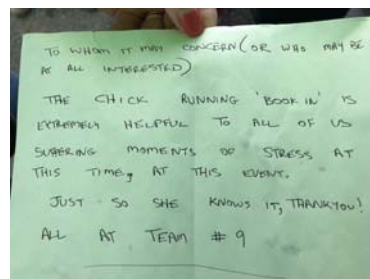 TO WHOM IT MAY CONCERN (OR WHO MAY BE
AT ALL INTERESTED)
THE CHICK RUNNING 'BOOK IN' IS
EXTREMELY HELPFUL TO ALL OF US
SUFFERING MOMENTS OF STRESS AT
THIS TIME, AT THIS EVENT.
JUST SO SHE KNOWS IT, THANKYOU!
ALL AT TEAM # 9